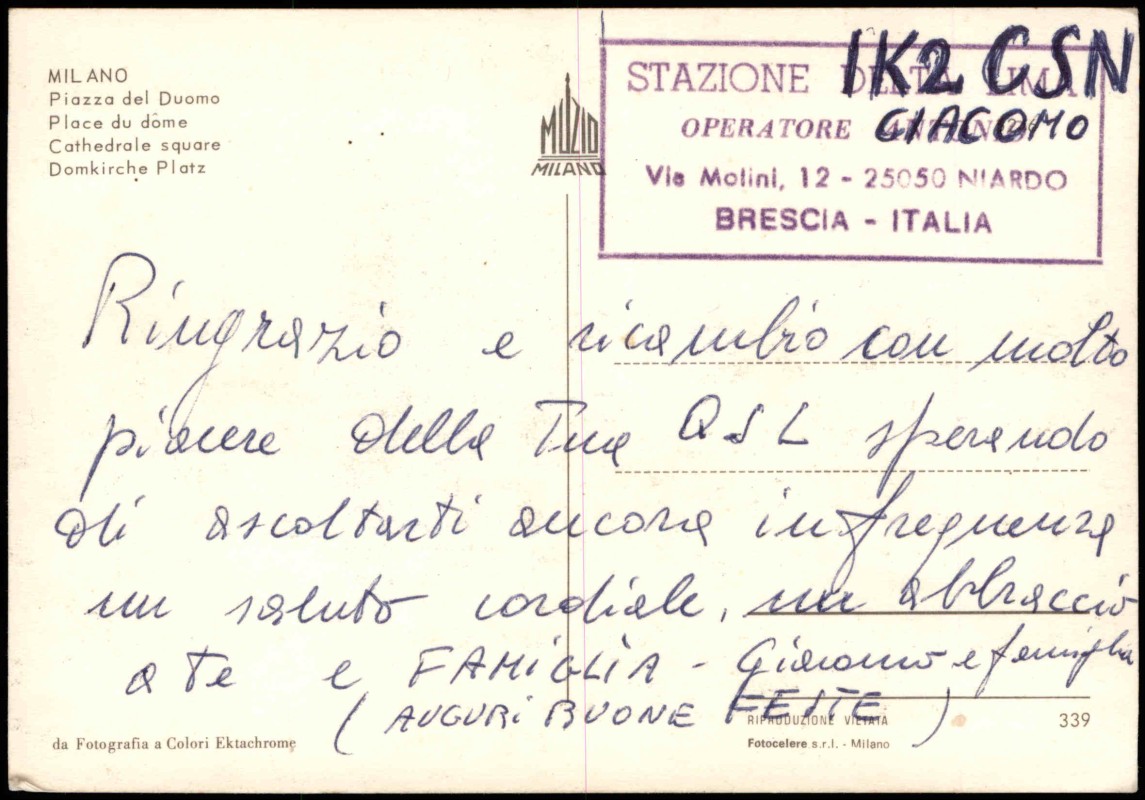 MILANO
Piazza del Duomo
Place du dôme
Cathedrale square
Domkirche Platz
MUZIO
MILANO
STAZIONE DELTA LIMA
IK2 CSN
OPERATORE
GIACOMO
Via Molini, 12 - 25050 NIARDO
BRESCIA - ITALIA
Ringrazio e ricambio con molto
piacere della Tua QSL sperando
di ascoltarti ancora in frequenza
un saluto cordiale, un abbraccio
a te e FAMIGLIA - Giacomo e famiglia
( AUGURI BUONE FESTE )
RIPRODUZIONE VIETATA
339
da Fotografia a Colori Ektachrome
Fotocelere s.r.l. - Milano